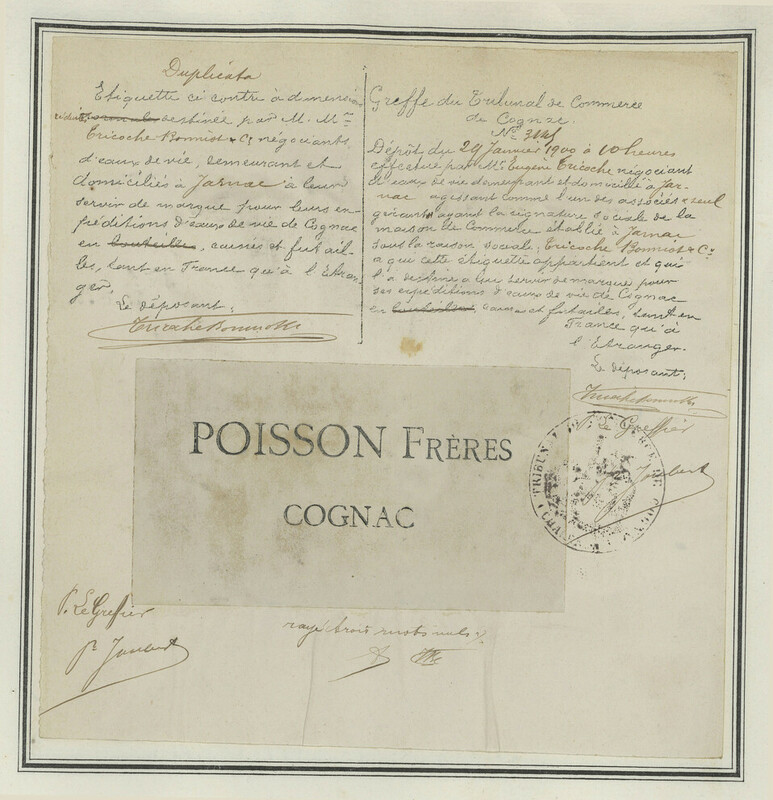 Duplicata
Etiquette ci contre à dimension
réduite destinée par M. Mrs
Tricoche Bonniot & Co négociants
d'eaux de vie, demeurant et
domiciliés à Jarnac à leur
servir de marque pour leurs ex-
péditions d'eaux de vie de Cognac
en bouteilles, caisses et futail-
les, tant en France qu'à l'Etran-
ger.
Le déposant:
Tricoche Bonniot & Co
Greffe du Tribunal de Commerce
de Cognac.
No
Dépôt du 29 Janvier 1900 à 10 heures
effectué par Mr Eugène Tricoche négociant
d'eaux de vie demeurant et domicilié à Jar-
nac agissant comme l'un des associés & seul
gérant ayant la signature sociale de la
maison de Commerce établie à Jarnac
sous la raison sociale, Tricoche Bonniot & Co
à qui cette étiquette appartient et qui
l'a destinée à lui servir de marque pour
ses expéditions d'eaux de vie de Cognac
en bouteilles, caisses et futailles, tant en
France qu'à
l'Etranger.
Le déposant:
Tricoche Bonniot & Co
P. Le Greffier
Joubert
POISSON FRÈRES
COGNAC
TRIBUNAL DE COMMERCE DE COGNAC
P. Le Greffier
P. Joubert
rayé trois mots nuls